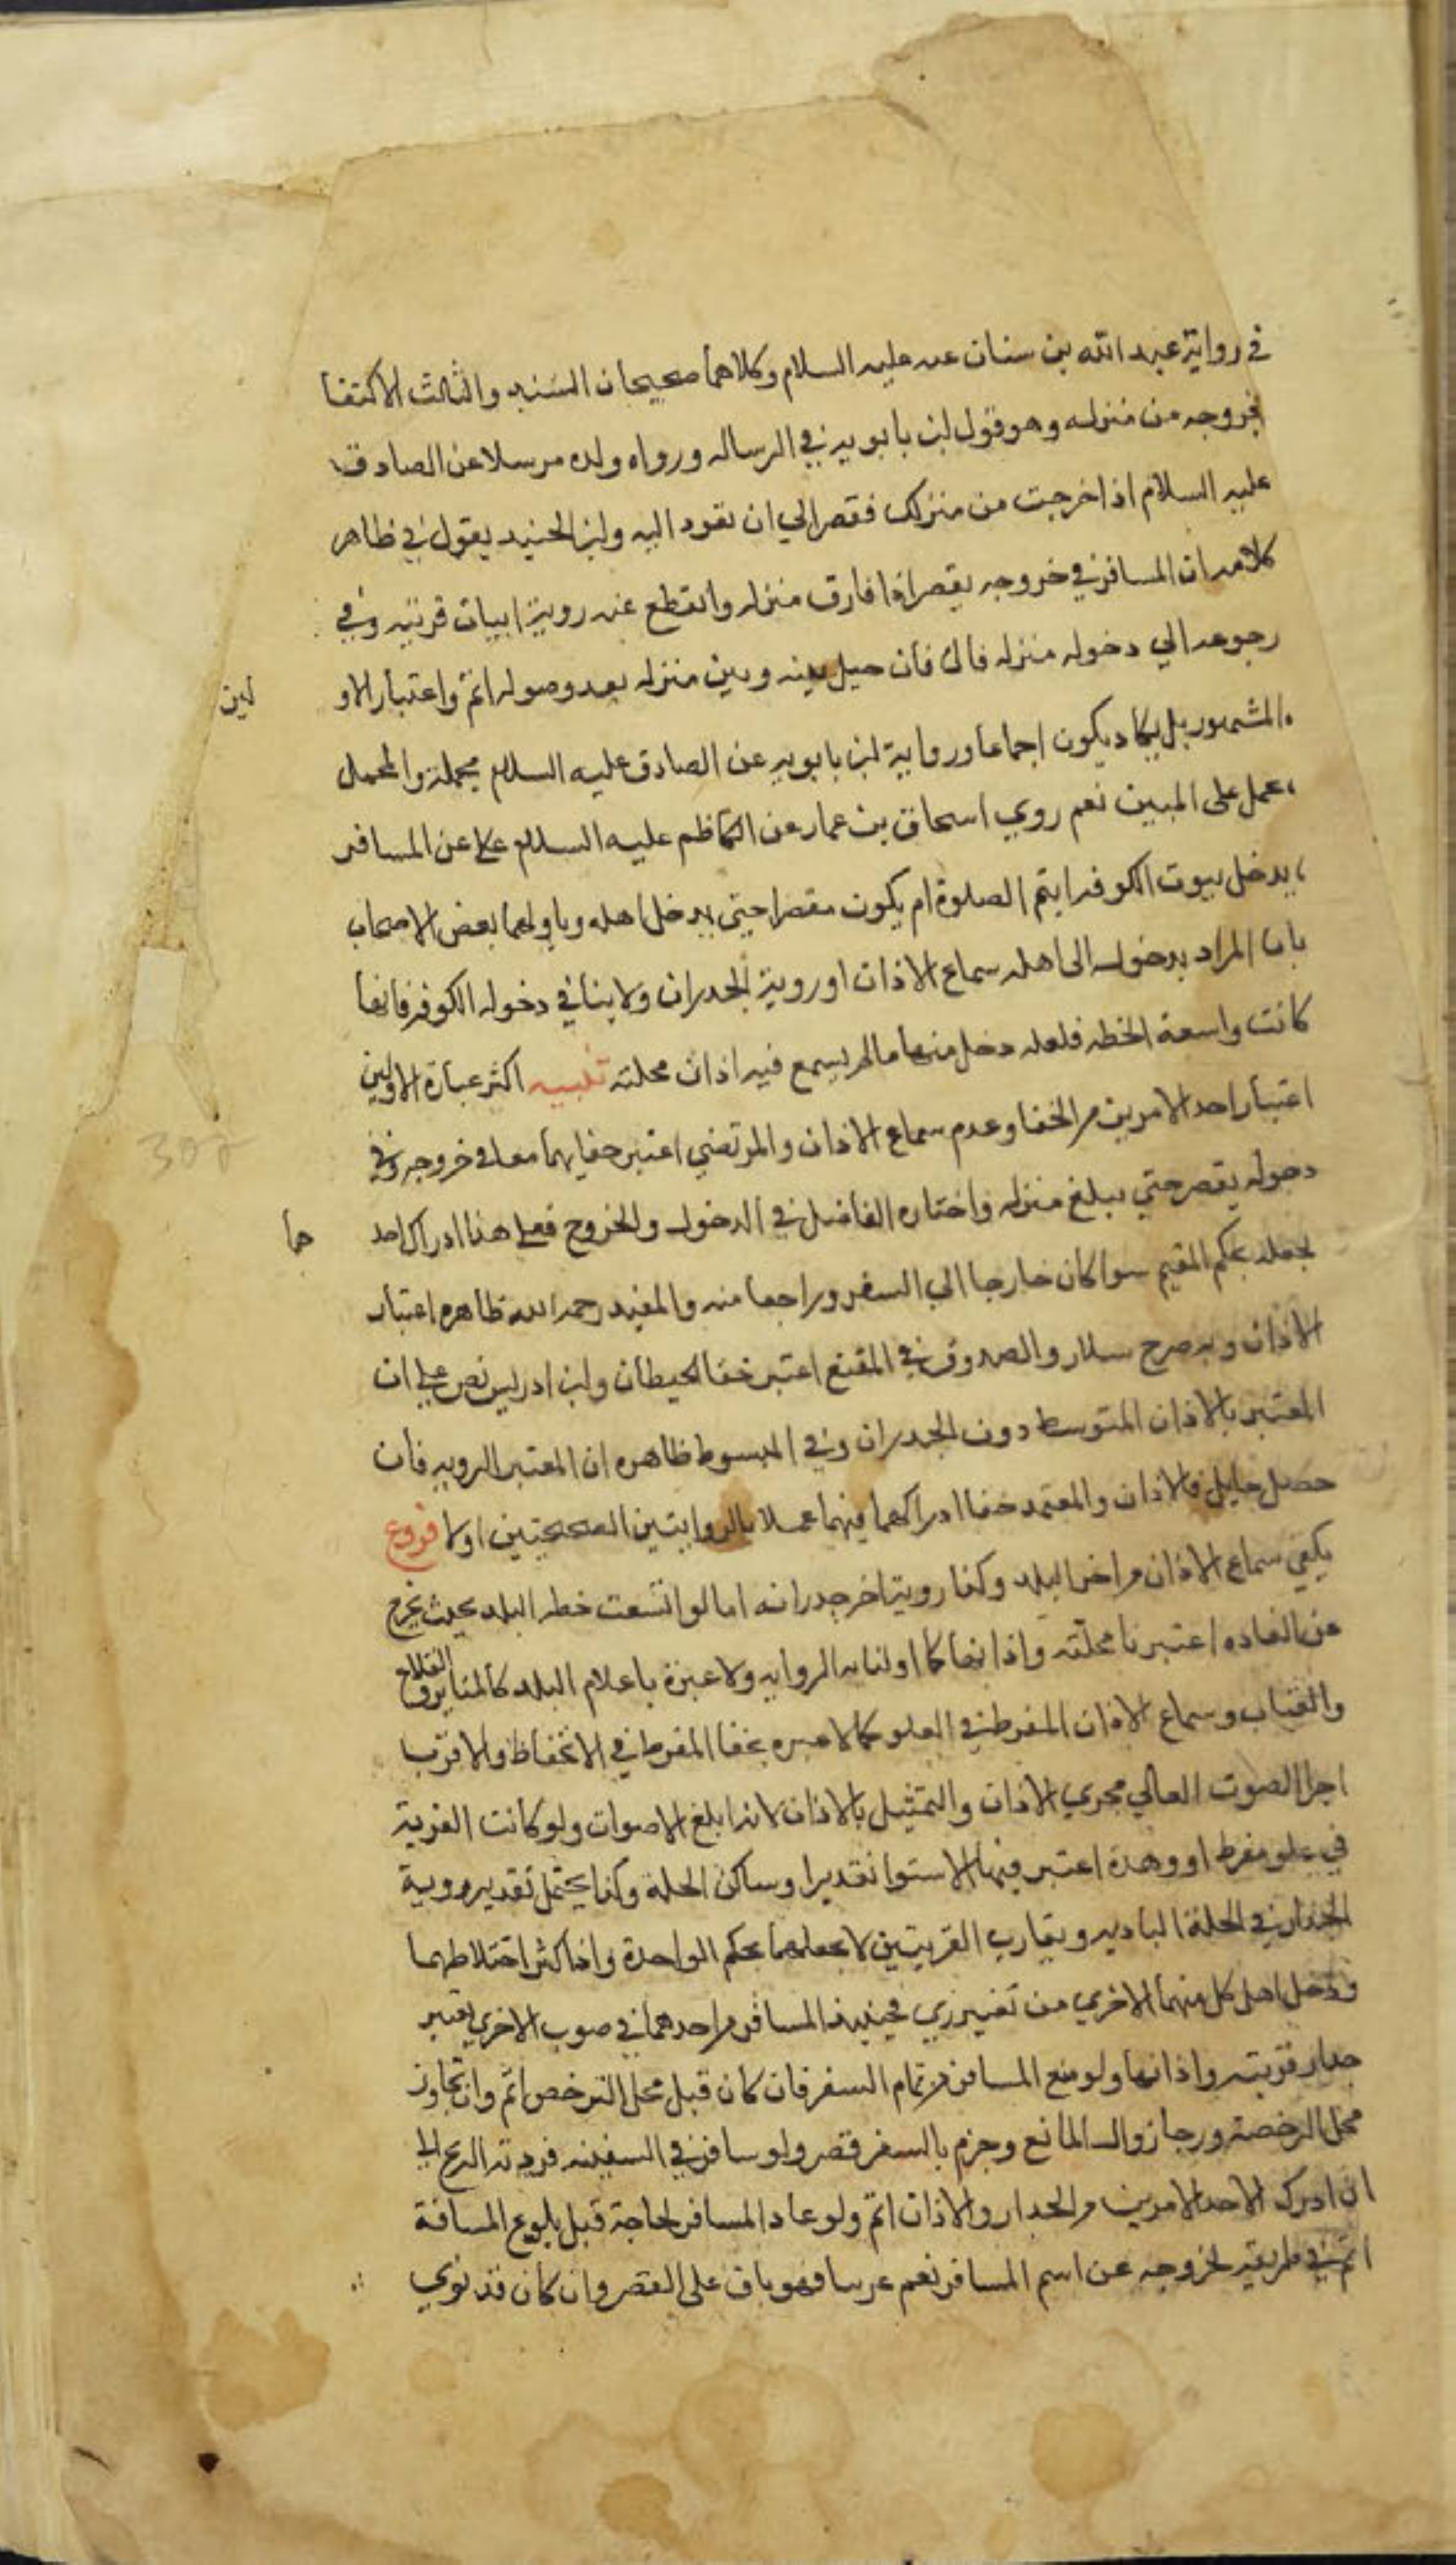 في رواية عبد الله بن سنان عنه عليه السلام وكلاهما صحيحان السند والثالث الاكتفا
بخروجه من منزله وهو قول ابن بابويه في الرساله ورواه ولده مرسلا عن الصادق
عليه السلام اذا خرجت من منزلك فقصر الي ان تعود اليه وابن الجنيد يقول في ظاهر
كلامه ان المسافر في خروجه يقصر اذا فارق منزله وانقطع عنه روية ابيات قريته وفي
رجوعه الي دخوله منزله قال فان حيل بينه وبين منزله بعد وصوله اتم واعتبار الاو
لين
المشهور بل يكاد يكون اجماعا ورواية ابن بابويه عن الصادق عليه السلام مجملة والمجمل
يحمل على المبين نعم روي اسحاق بن عمار عن الكاظم عليه السلام عن المسافر
يدخل بيوت الكوفه ايتم الصلوة ام يكون مقصرا حتي يدخل اهله وياولها بعض الاصحاب
بان المراد بدخوله الى اهله سماع الاذان او روية الجدران ولا ينافي دخوله الكوفه فانها
كانت واسعة الخطه فلعله دخل منها ما لم يسمع فيه اذان محلته تنبيه اكثر عبارة الاولين
اعتبار احد الامرين من الخفا وعدم سماع الاذان والمرتضي اعتبر خفايهما معا في خروجه وفي
دخوله يقصر حتي يبلغ منزله واختاره الفاضل في الدخول والخروج فعلي هذا ادراك احد
هما
يجعله بحكم المقيم سوا كان خارجا الي السفر وراجعا منه والمفيد رحمه الله ظاهره اعتبار
الاذان وبه صرح سلار والصدوق في المقنع اعتبر خفا الحيطان وابن ادريس نص علي ان
المعتبر بالاذان المتوسط دون الجدران وفي المبسوط ظاهره ان المعتبر الرويه فان
حصل حايل فالاذان والمعتمد خفا ادراكهما فيهما عملا بالروايتين الصحيحتين اولا فروع
يكفي سماع الاذان من اخر البلد وكذا روية اخر جدرانه اما لو اتسعت خطه البلد بحيث يخرج
عن العاده اعتبرنا محلته واذانها كما اولنا به الروايه ولا عبرة باعلام البلد كالمناير والقلاع
والقباب وسماع الاذان المفرط في العلو كما لا عبره بخفا المفرط في الانخفاظ والاقرب
اجرا الصوت العالي مجري الاذان والتمثيل بالاذان لانه ابلغ الاصوات ولو كانت القرية
في علو مفرط او وهدة اعتبر فيها الاستوا تقديرا وساكن الحلة وكذا يحتمل تقدير روية
الجدار في الحلة الباديه وبقارب القريتين لا يجعلهما بحكم الواحدة واذا كثر اختلاطهما
ودخل اهل كل منهما الاخري من تغير زي فحينيذ المسافر من احدهما في صوب الاخري يعتبر
جدار قريته واذانها ولو منع المسافر من تمام السفر فان كان قبل محل الترخص اتم وان تجاوز
محل الرخصة ورجا زوال المانع وجزم بالسفر قصر ولو سافر في السفينه فردته الريح الي
ان ادرك الاحد الامرين من الجدار والاذان اتم ولو عاد المسافر لحاجة قبل بلوغ المسافة
اتم في طريقه لخروجه عن اسم المسافر نعم فهو باق على القصر وان كان قد نوي